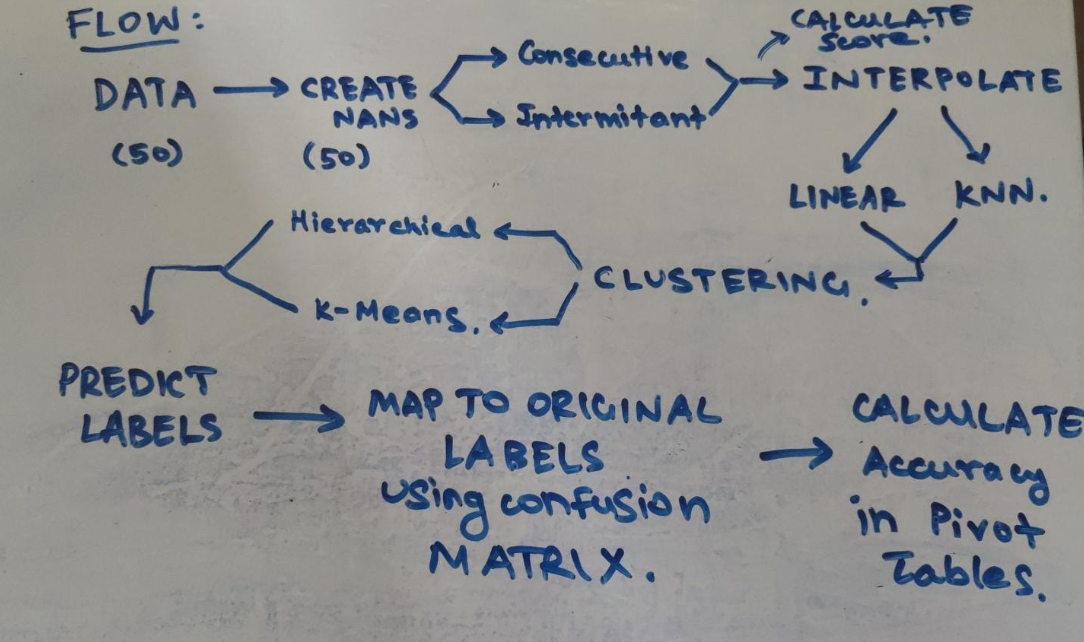 FLOW:
CALCULATE
Score.
DATA
(50)
CREATE
NANS
(50)
Consecutive
Intermitant
INTERPOLATE
LINEAR
KNN.
CLUSTERING.
Hierarchical
K-Means.
PREDICT
LABELS
MAP TO ORIGINAL
LABELS
Using confusion
MATRIX.
CALCULATE
Accuracy
in Pivot
Tables.